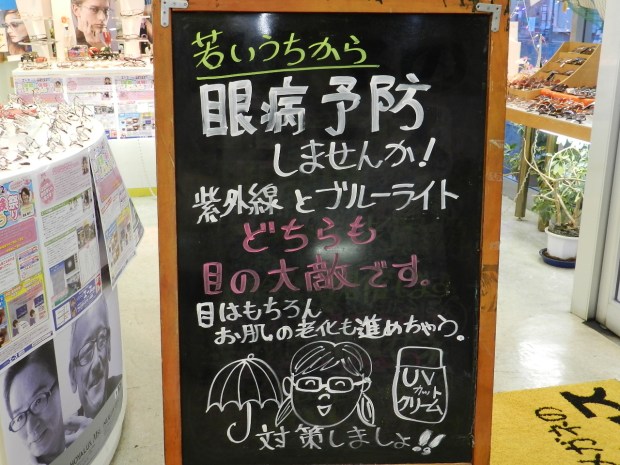 若いうちから
眼病予防
しませんか!
紫外線とブルーライト
どちらも
目の大敵です。
目はもちろん
お肌の老化も進めちゃう。
UV
カット
クリーム
対策しましょ!!